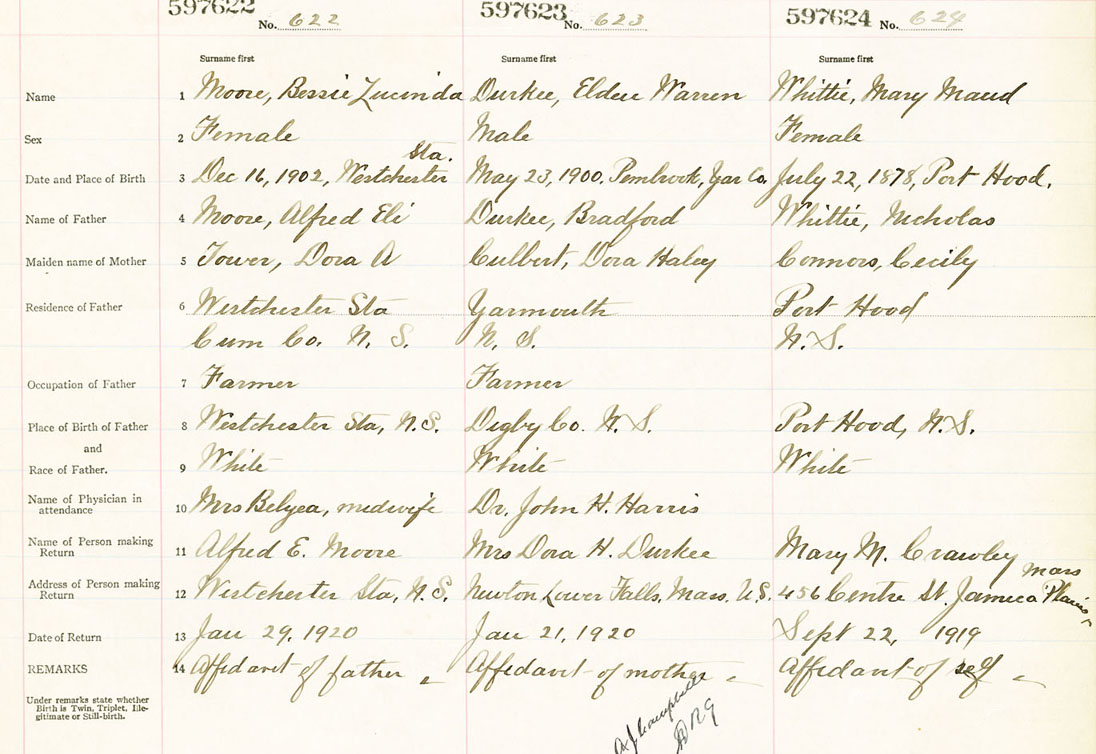 597622 No. 622 597623 No. 623 597624 No. 624
Surname first Surname first Surname first
Name 1 Moore, Bessie Lucinda Durkee, Elden Warren Whittie, Mary Maud
Sex 2 Female Male Female
Sta.
Date and Place of Birth 3 Dec 16, 1902, Westchester May 23, 1900. Pembrook, Yar Co. July 22, 1878, Port Hood.
Name of Father 4 Moore, Alfred Eli Durkee, Bradford Whittie, Nicholas
Maiden name of Mother 5 Tower, Dora A Culbert, Dora Haley Connors, Cecily
Residence of Father 6 Westchester Sta Yarmouth Port Hood
Cum Co. N. S. N. S. N.S.
Occupation of Father 7 Farmer Farmer
Place of Birth of Father 8 Westchester Sta, N.S. Digby Co. N.S. Port Hood, N.S.
and
Race of Father. 9 White White White
Name of Physician in
attendance 10 Mrs Belyea, midwife Dr. John H. Harris
Name of Person making
Return 11 Alfred E. Moore Mrs Dora H. Durkee Mary M. Crawley
Mass
Address of Person making
Return 12 Westchester Sta, N.S. Newton Lower Falls, Mass. U.S. 456 Centre St. Jamica Plains
Date of Return 13 Jan 29, 1920 Jan 21, 1920 Sept 22, 1919
REMARKS 14 Affidavit of father Affidavit of mother Affidavit of self
Under remarks state whether
Birth is Twin, Triplet, Ille-
gitimate or Still-birth.